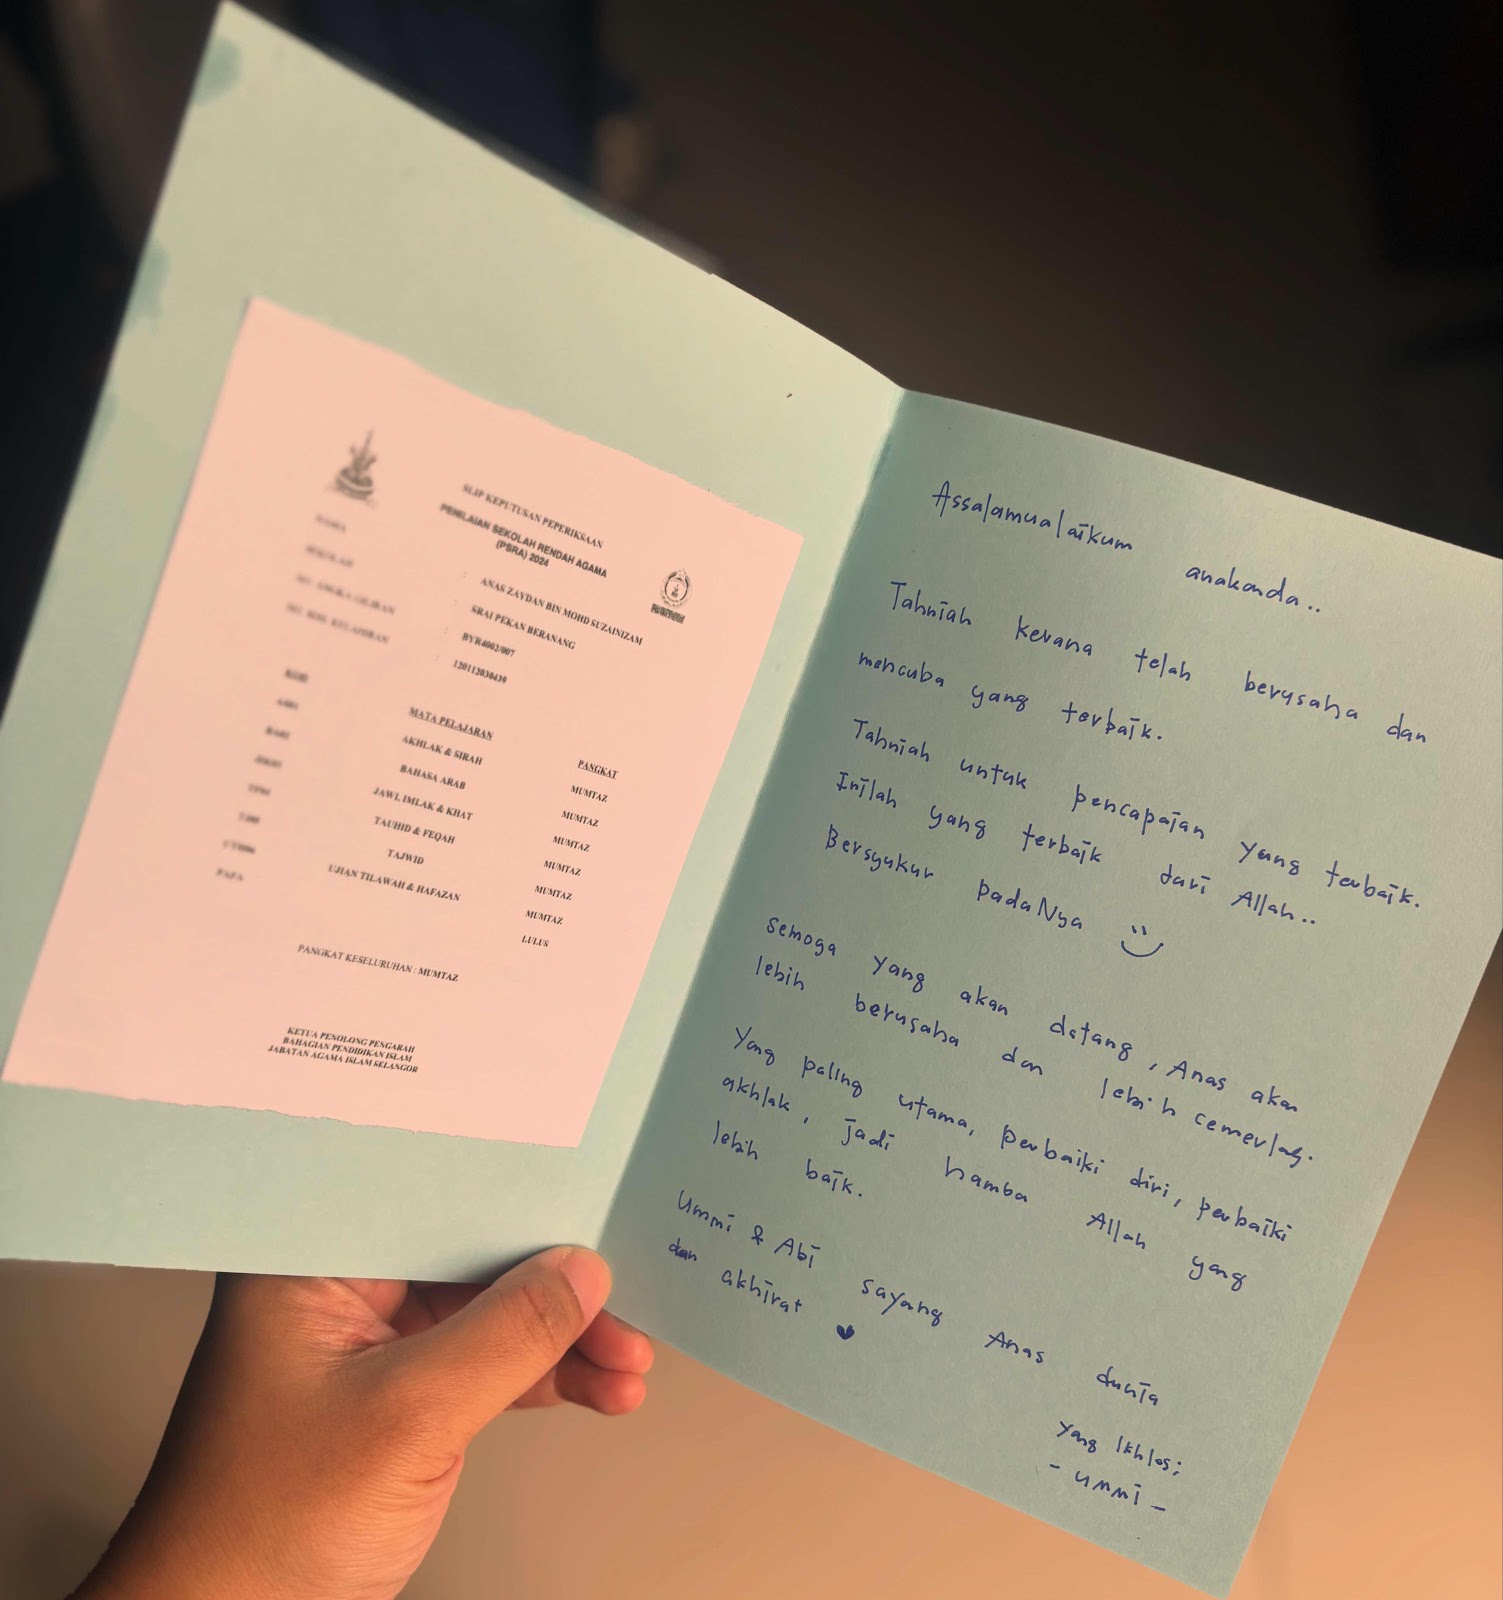 SLIP KEPUTUSAN PEPERIKSAAN
PENILAIAN SEKOLAH RENDAH AGAMA
(PSRA) 2024
NAMA : ANAS ZAYDAN BIN MOHD SUZAINIZAM
SEKOLAH : SRAI PEKAN BERANANG
NO. ANGKA GILIRAN : BYR4002/007
NO. SIJIL KELAHIRAN : 120112030439
KOD MATA PELAJARAN PANGKAT
AKHLAK & SIRAH MUMTAZ
BAHASA ARAB MUMTAZ
JAWI, IMLAK & KHAT MUMTAZ
TAUHID & FEQAH MUMTAZ
TAJWID MUMTAZ
UJIAN TILAWAH & HAFAZAN MUMTAZ
PAFA LULUS
PANGKAT KESELURUHAN : MUMTAZ
KETUA PENOLONG PENGARAH
BAHAGIAN PENDIDIKAN ISLAM
JABATAN AGAMA ISLAM SELANGOR
Assalamualaikum anakanda..
Tahniah kerana telah berusaha dan
mencuba yang terbaik.
Tahniah untuk pencapaian yang terbaik.
Inilah yang terbaik dari Allah..
Bersyukur padaNya
Semoga yang akan datang, Anas akan
lebih berusaha dan lebih cemerlang.
Yang paling utama, perbaiki diri, perbaiki
akhlak, jadi hamba Allah yang
lebih baik.
Ummi & Abi sayang Anas dunia
dan akhirat ♥
Yang Ikhlas;
- Ummi -